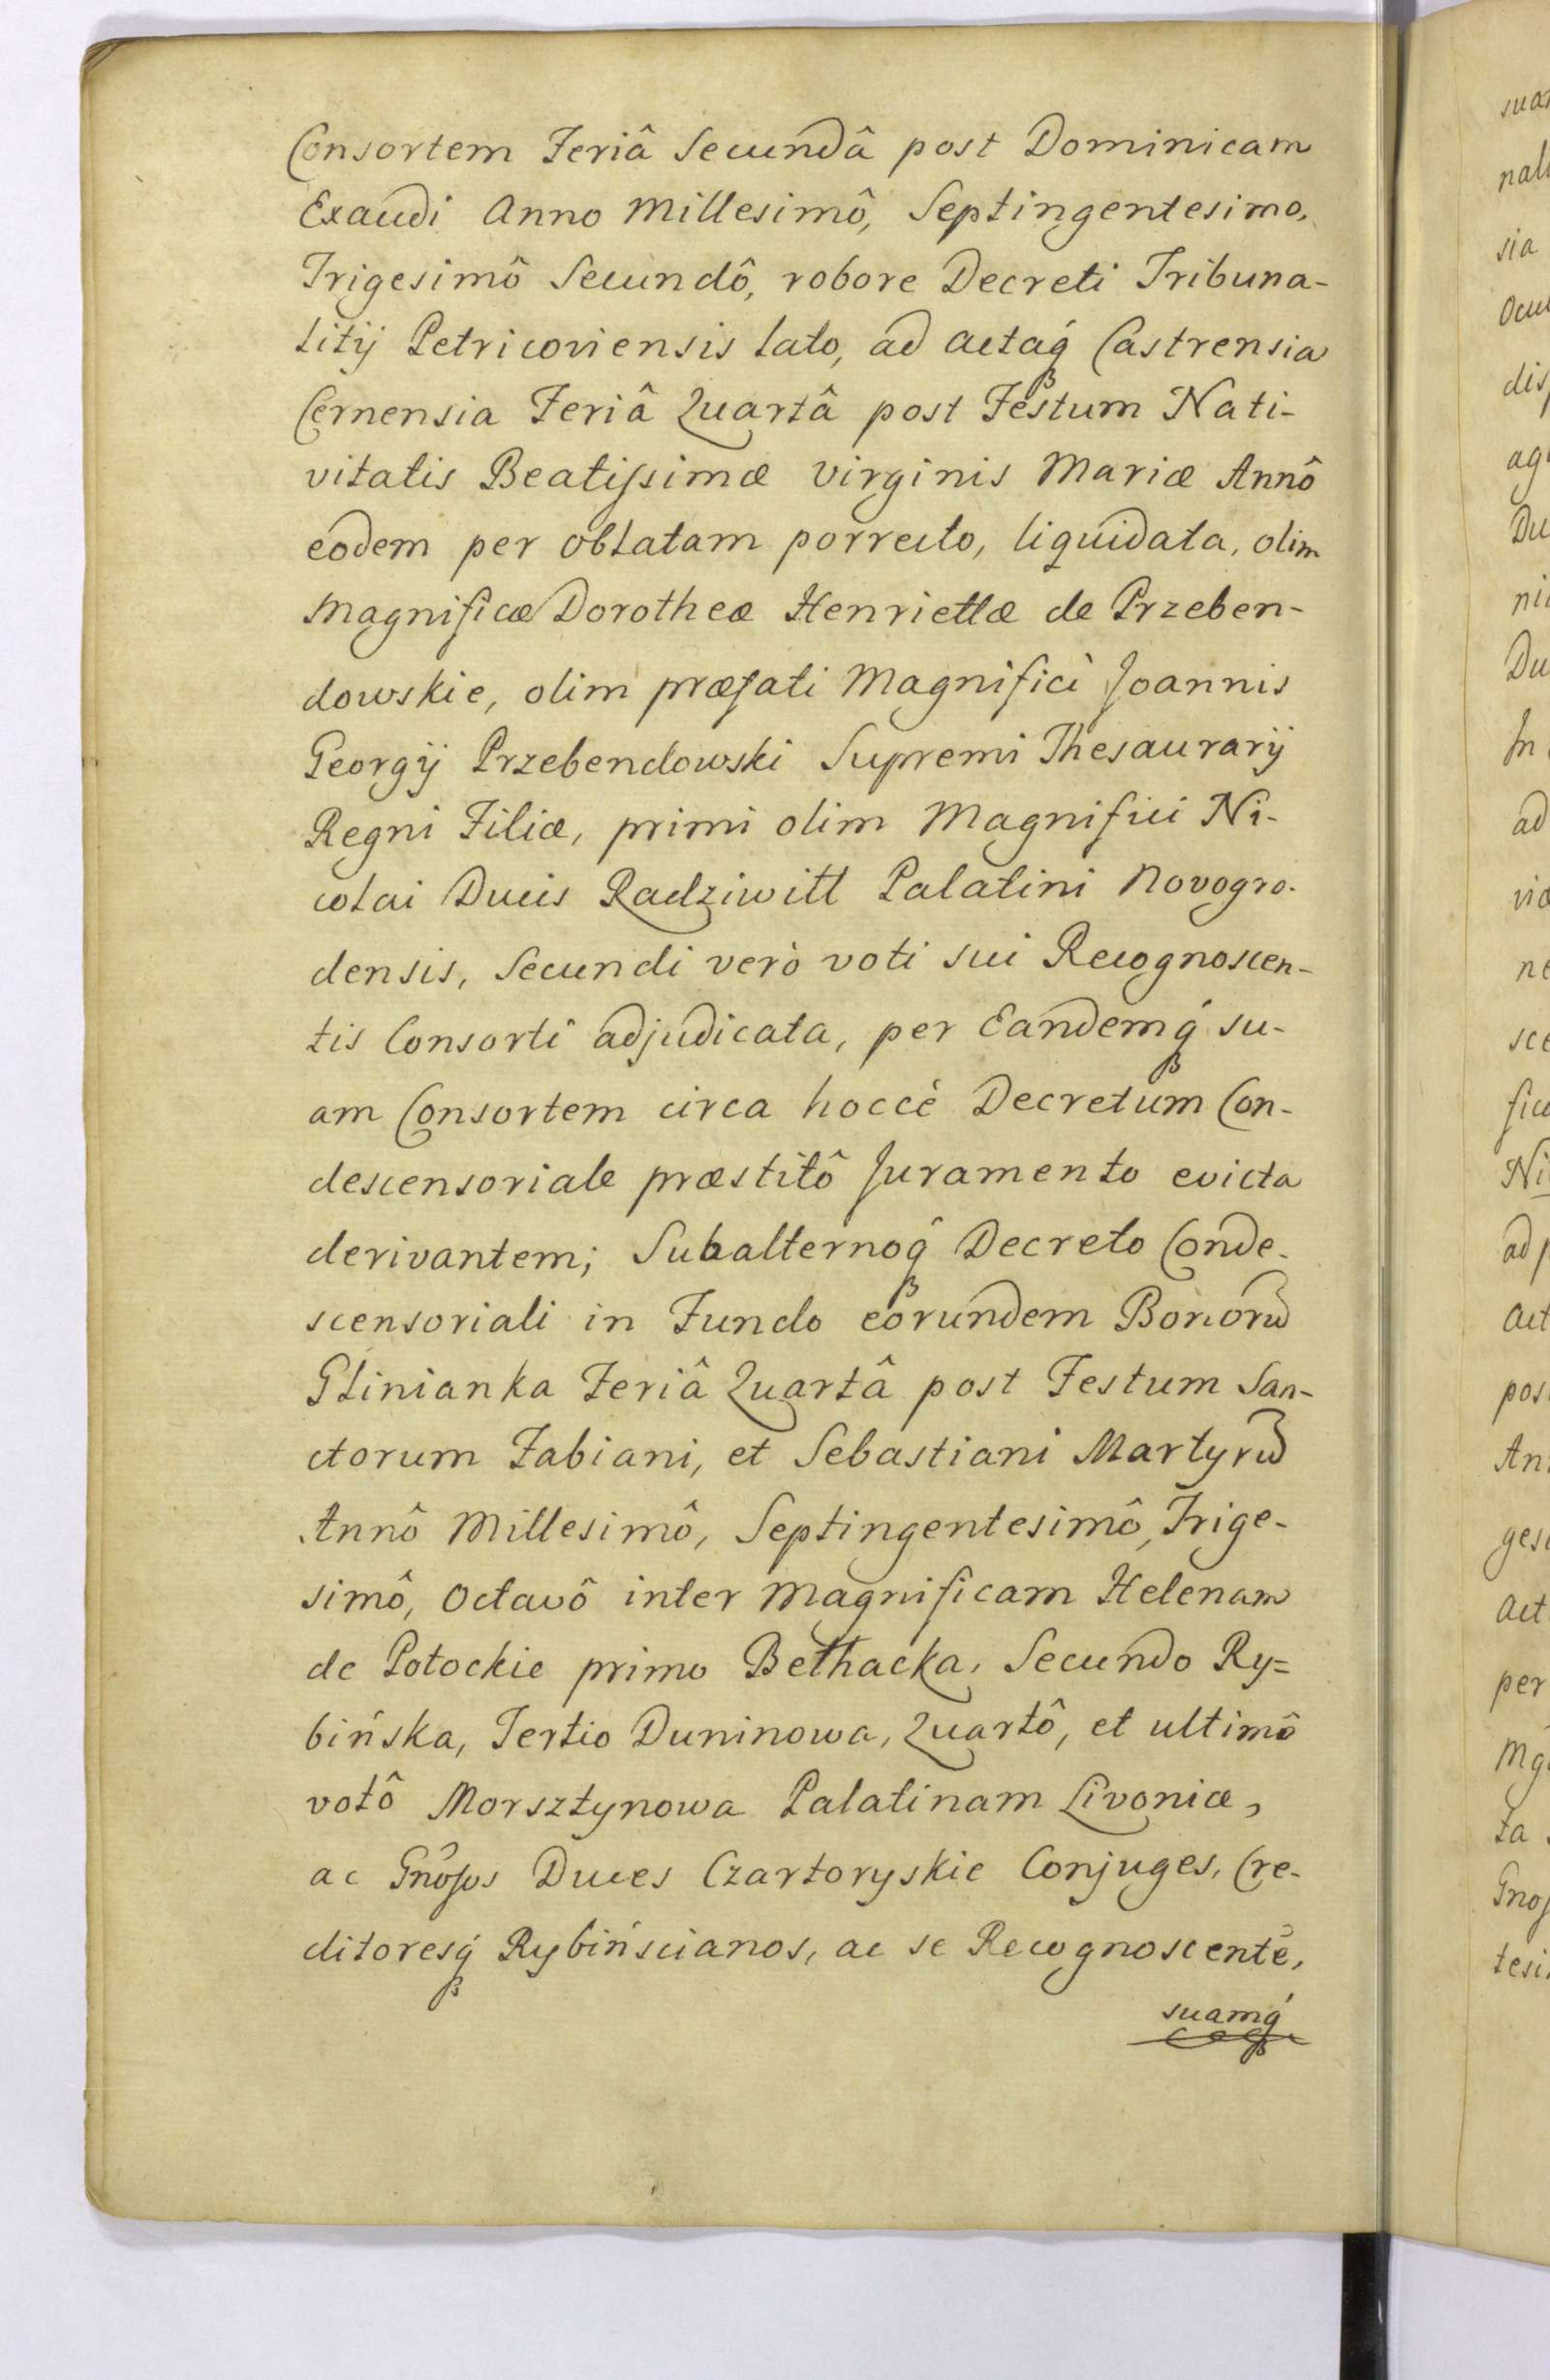 Consortem Feriâ Secundâ post Dominicam
Exaudi Anno Millesimô, Septingentesimo,
Trigesimô Secundô, robore Decreti Tribuna-
litij Petricoviensis lato, ad actaq́ Castrensia
Cernensia Feriâ Quartâ post Festum Nati-
vitatis Beatissimæ Virginis Mariæ Annô
eodem per oblatam porrecto, liquidata, olim
Magnificæ Dorotheæ Henriettæ de Przeben-
dowskie, olim præfati Magnifici Joannis
Georgij Przebendowski Supremi Thesaurarij
Regni Filiæ, primi olim Magnifici Ni-
colai Ducis Radziwitt Palatini Novogro-
densis, Secundi verò voti sui Recognoscen-
tis Consorti adjudicata, per Eandemq́ su-
am Consortem circa hoccè Decretum Con-
descensoriale præstitô Juramento evicta
derivantem; Subalternoq́ Decreto Conde-
scensoriali in Fundo eorundem Bonorū
Glinianka Feriâ Quartâ post Festum San-
ctorum Fabiani, et Sebastiani Martyrū
Annô Millesimô, Septingentesimô, Trige-
simô, Octavô inter Magnificam Helenam
de Potockie primo Bethacka, Secundo Ry=
bińska, Tertio Duninowa, Quartô, et ultimô
votô Morsztynowa Palatinam Livoniæ,
ac Gnôsos Duces Czartoryskie Conjuges, Cre-
ditoresq́ Rybińscianos, ac se Recognoscentē,
suamq́